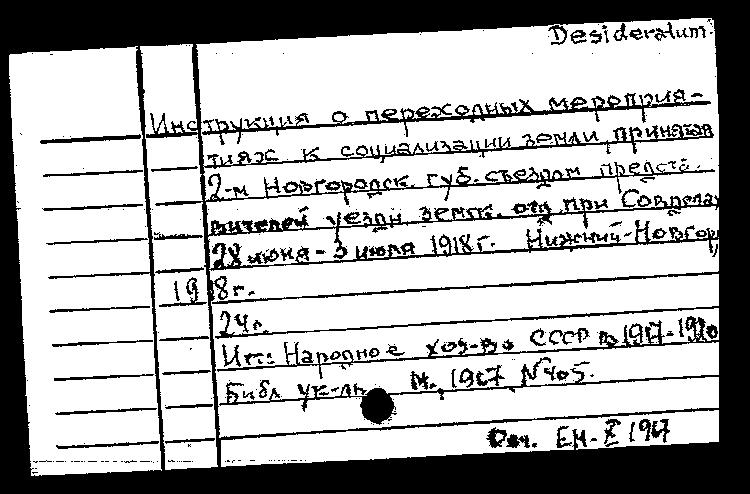 Desideratum.
Инструкция о переходных мероприя-
тиях к социализации земли, принятая
2-м Новгородск. губ. съездом предста-
вителей уездн. земск. отд. при Совдепах
28 июня - 3 июля 1918 г. Нижний-Новгор
1918 г.
24 с.
Ист: Народное хоз-во СССР в 1917-1920
Библ. ук-ль М., 1967, № 405.
ЕМ-X 1967